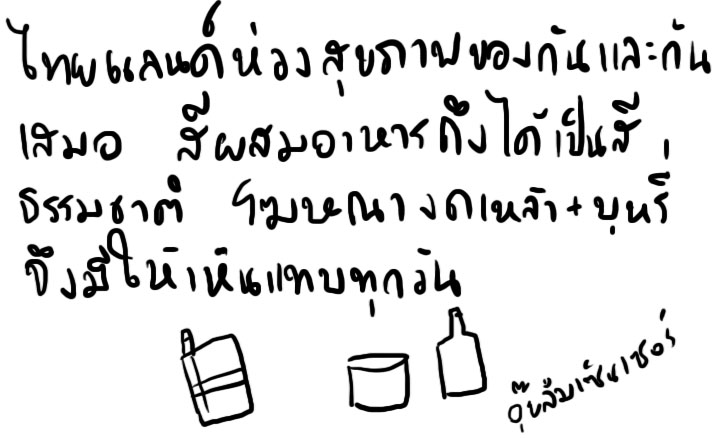 ไทยแลนด์ห่วงสุขภาพของกันและกัน
เสมอ สีผสมอาหารถึงได้เป็นสี
ธรรมชาติ โฆษณางดเหล้า+บุหรี่
จึงมีให้เห็นแทบทุกวัน
อุ๊ยลืมเซ็นเซอร์